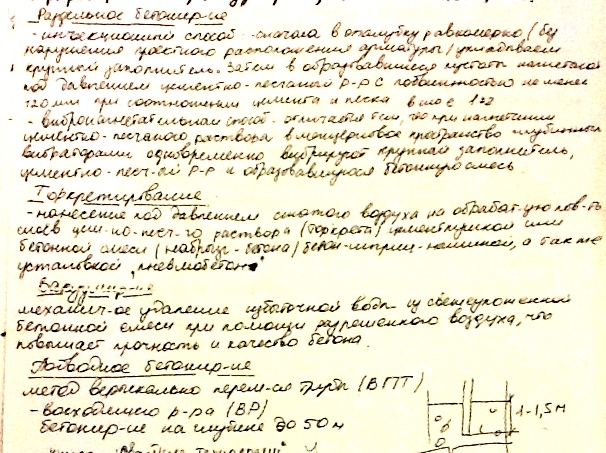 Раздельное бетонир-ие
- инъекционный способ - сначала в опалубку равномерно (без
нарушения проектного расположения арматуры) укладываем
крупный заполнитель. Затем в образовавшиеся пустоты нагнетают
под давлением цементно-песчаный р-р с подвижностью не менее
120 мм при соотношении цемента и песка 1:2
- вибронагнетательный способ - отличается тем, что при нагнетании
цементно-песчаного раствора в межщебеночное пространство глубинными
вибраторами одновременно вибрируют крупный заполнитель,
цементно-песч-ый р-р и образовавшуюся бетонную смесь
Торкретирование
- нанесение под давлением сжатого воздуха на обрабат-ую пов-ть
слоев цем-но-песч-го раствора (торкрета) цементпушкой или
бетонной смеси (набрызг-бетона) бетон-шприц-машиной, а также
установкой "пневмобетон"
Вакуумир-ие
механич-ое удаление избыточной воды из свежеуложенной
бетонной смеси при помощи разреженного воздуха, что
повышает прочность и качество бетона.
Подводное бетонир-ие
метод вертикально перем-ся трубы (ВПТ)
- восходящего р-ра (ВР)
бетонир-ие на глубине до 50 м
1-1,5 м